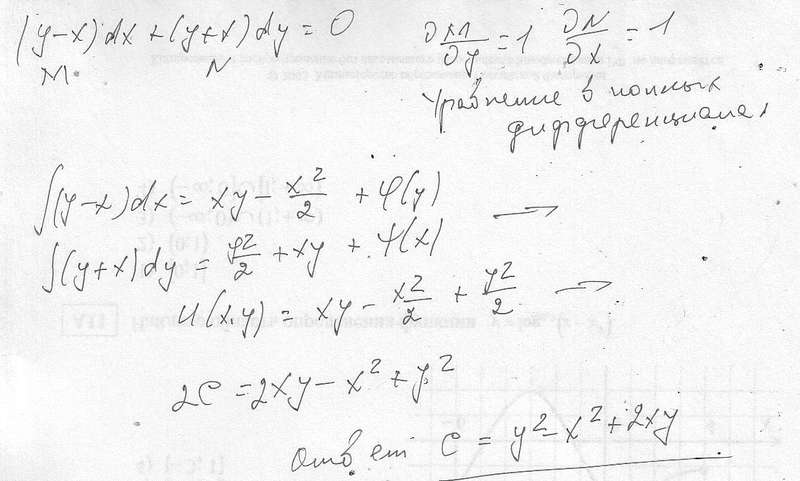 (y-x)dx+(y+x)dy=0 ∂M/∂y=1 ∂N/∂x=1
M N
Уравнение в полных
дифференциалах
∫(y-x)dx = xy - x²/2 + φ(y)
∫(y+x)dy = y²/2 + xy + ψ(x)
u(x,y) = xy - x²/2 + y²/2
2C = 2xy - x² + y²
ответ C = y² - x² + 2xy